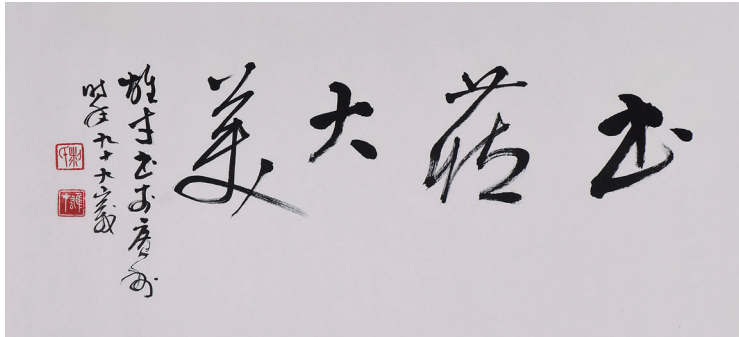 书藏大美
雄才书于广州
时年九十九岁